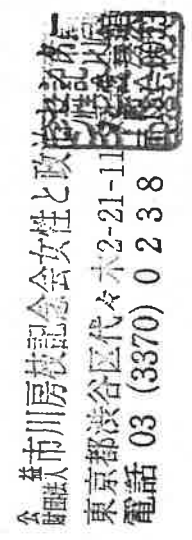 公益
財団法人 市川房枝記念会女性と政治
東京都渋谷区代々木2-21-11
電話 03 (3370) 0238